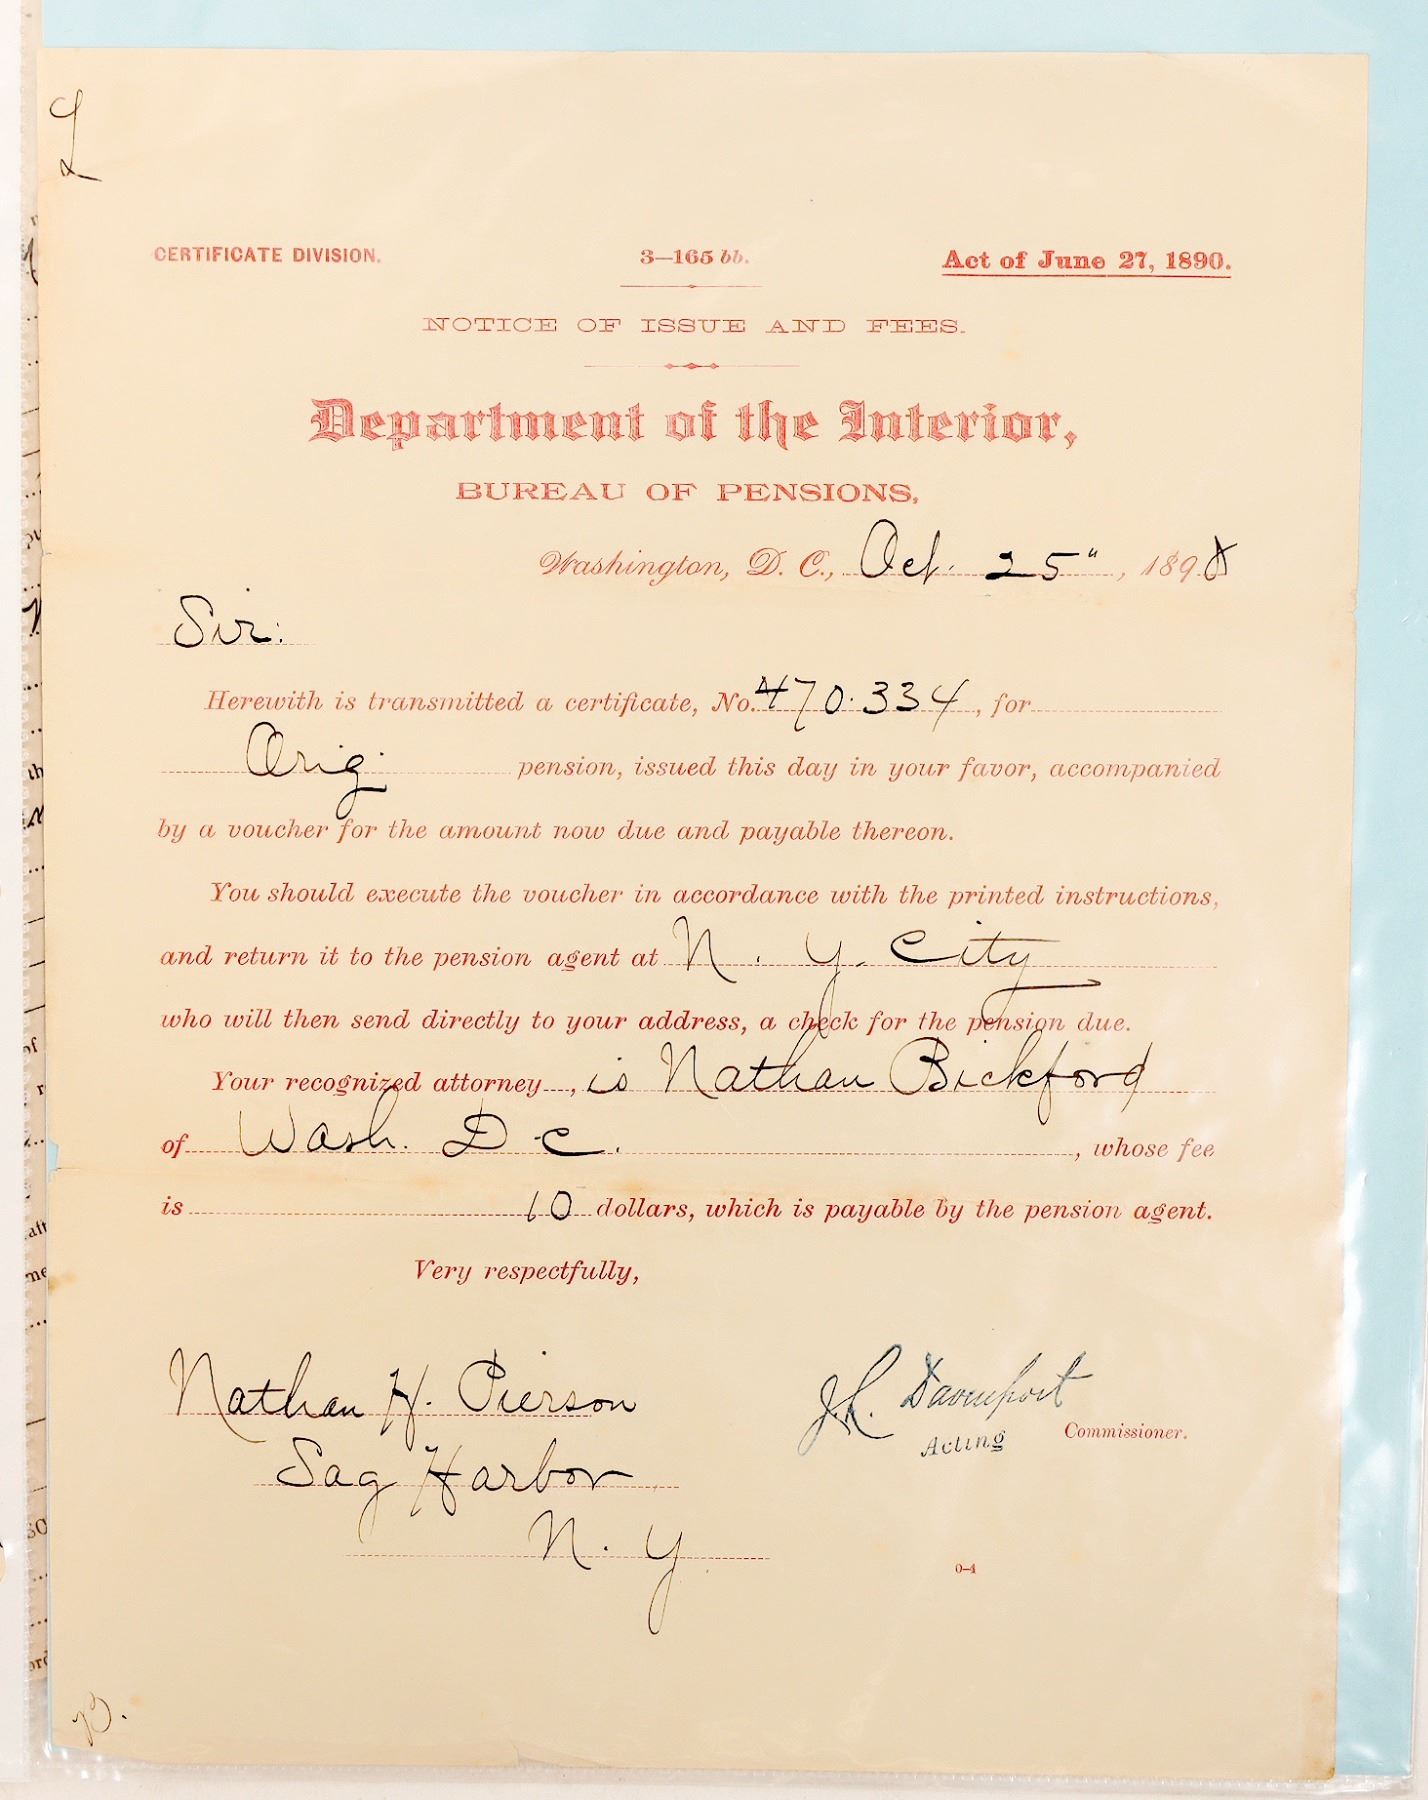 L
CERTIFICATE DIVISION. 3—165 bb. Act of June 27, 1890.
NOTICE OF ISSUE AND FEES.
Department of the Interior,
BUREAU OF PENSIONS,
Washington, D. C., Oct. 25", 1898
Sir:
Herewith is transmitted a certificate, No. 470.334, for
Orig. pension, issued this day in your favor, accompanied
by a voucher for the amount now due and payable thereon.
You should execute the voucher in accordance with the printed instructions,
and return it to the pension agent at N. Y. City
who will then send directly to your address, a check for the pension due.
Your recognized attorney , is Nathan Bickford
of Wash. D. C. , whose fee
is 10 dollars, which is payable by the pension agent.
Very respectfully,
Nathan H. Pierson J. L. Davenport
Acting Commissioner.
Sag Harbor
N. Y.
0-4